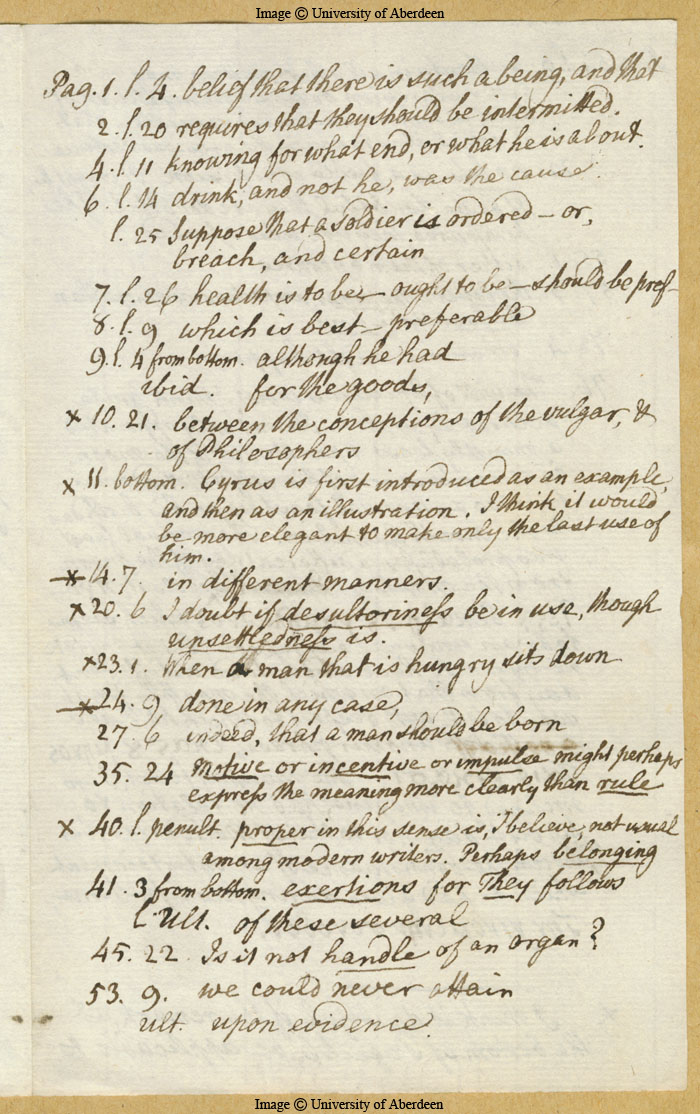 Image © University of Aberdeen
Pag. 1. l. 4. belief that there is such a being, and that
2. l. 20 requires that they should be intermitted.
4. l. 11 knowing for what end, or what he is about.
6. l. 14 drink, and not he, was the cause.
l. 25 Suppose that a soldier is ordered – or,
breach, and certain
7. l. 26 health is to be – ought to be – should be pref-
8. l. 9 which is best – preferable
9. l. 4 from bottom. although he had
ibid. for the goods,
x 10. 21. between the conceptions of the vulgar, &
of Philosophers
x 11. bottom. Cyrus is first introduced as an example,
and then as an illustration. I think it would
be more elegant to make only the last use of
him.
x 14. 7. in different manners.
x 20. 6 I doubt if desultoriness be in use, though
unsettledness is.
x 23. 1. When a man that is hungry sits down
x 24. 9 done in any case,
27. 6 indeed, that a man should be born
35. 24 Motive or incentive or impulse might perhaps
express the meaning more clearly than rule
x 40. l. penult. proper in this sense is, I believe, not usual
among modern writers. Perhaps belonging
41. 3 from bottom. exertions for They follows
l. Ult. of these several
45. 22. Is it not handle of an organ?
53. 9. we could never attain
ult. upon evidence.
Image © University of Aberdeen